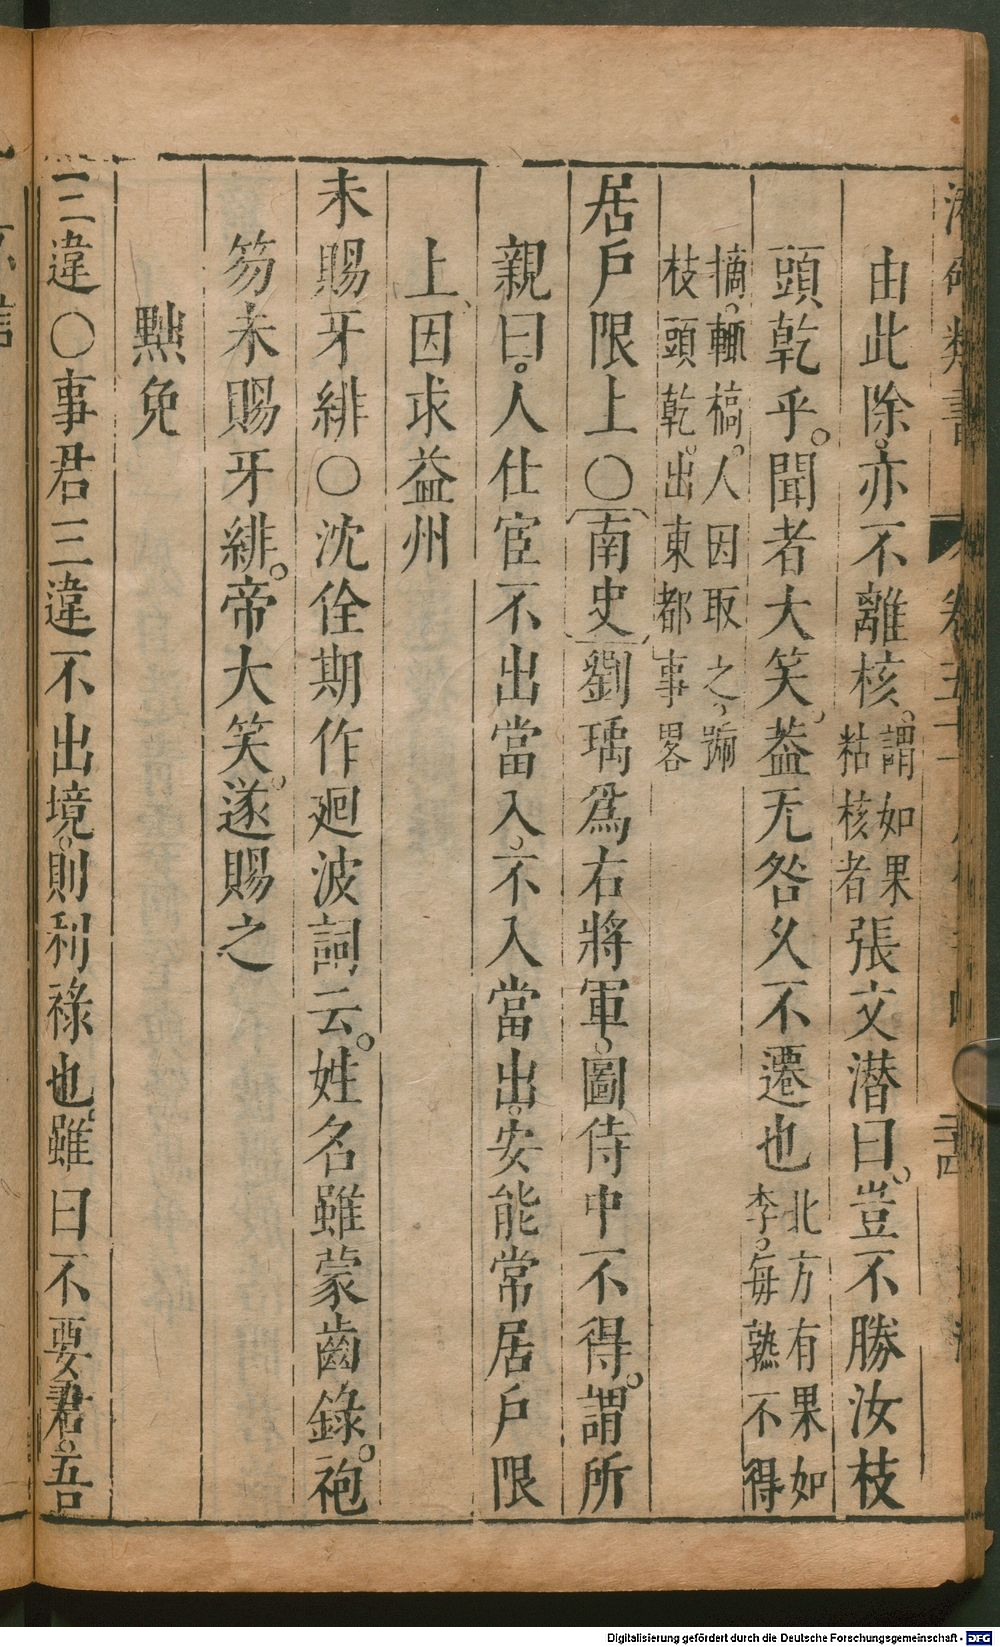 由此除。亦不離核。謂如果粘核者張文潜曰。豈不勝汝枝
頭乾乎。聞者大笑。葢无咎久不遷也北方有果如李。每熟不得
摘。輙槁。人因取之。號枝頭乾。出東都事畧
居戶限上〇南史劉瑀爲右將軍。圖侍中不得。謂所
親曰。人仕宦不出當入。不入當出。安能常居戶限
上、因求益州
未賜牙緋〇沈佺期作廻波詞云。姓名雖蒙齒錄。袍
笏未賜牙緋。帝大笑。遂賜之
㸃免
三違〇事君三違不出境。則利祿也。雖曰不要君。吾
Digitalisierung gefördert durch die Deutsche Forschungsgemeinschaft - DFG